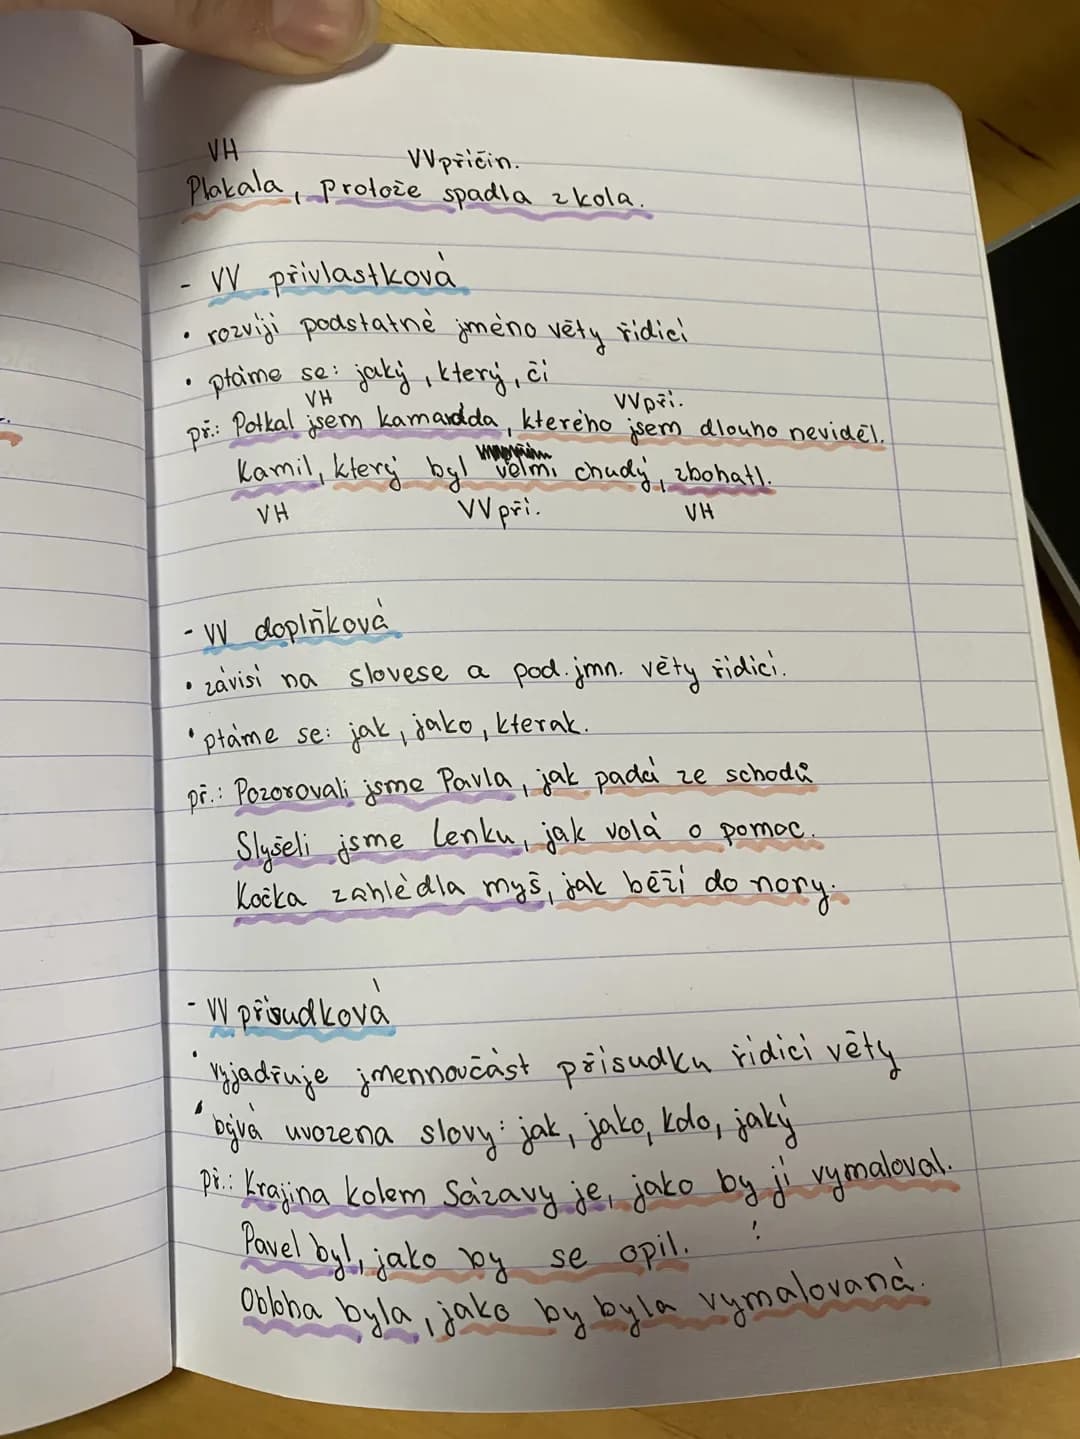 VH VVpřičin.
Plakala, protože spadla z kola.
- VV přívlastková
• rozvíjí podstatné jméno věty řídící
• ptáme se: jaký, který, čí
VH VVpří.
př.: Potkal jsem kamarda, kterého jsem dlouho neviděl.
Kamil, který byl velmi chudý, zbohatl.
VH VVpří. VH
- VV doplňková
• závisí na slovese a pod. jmn. věty řídící.
• ptáme se: jak, jako, kterak.
př.: Pozorovali jsme Pavla, jak padá ze schodů
Slyšeli jsme Lenku, jak volá o pomoc.
Kočka zahlédla myš, jak běží do nory.
- VV přísudková
• vyjadřuje jmennoučást přísudku řídící věty
• bývá uvozena slovy: jak, jako, kdo, jaký
př.: Krajina kolem Sázavy je, jako by jí vymaloval.
Pavel byl, jako by se opil. !
Obloha byla, jako by byla vymalovaná.